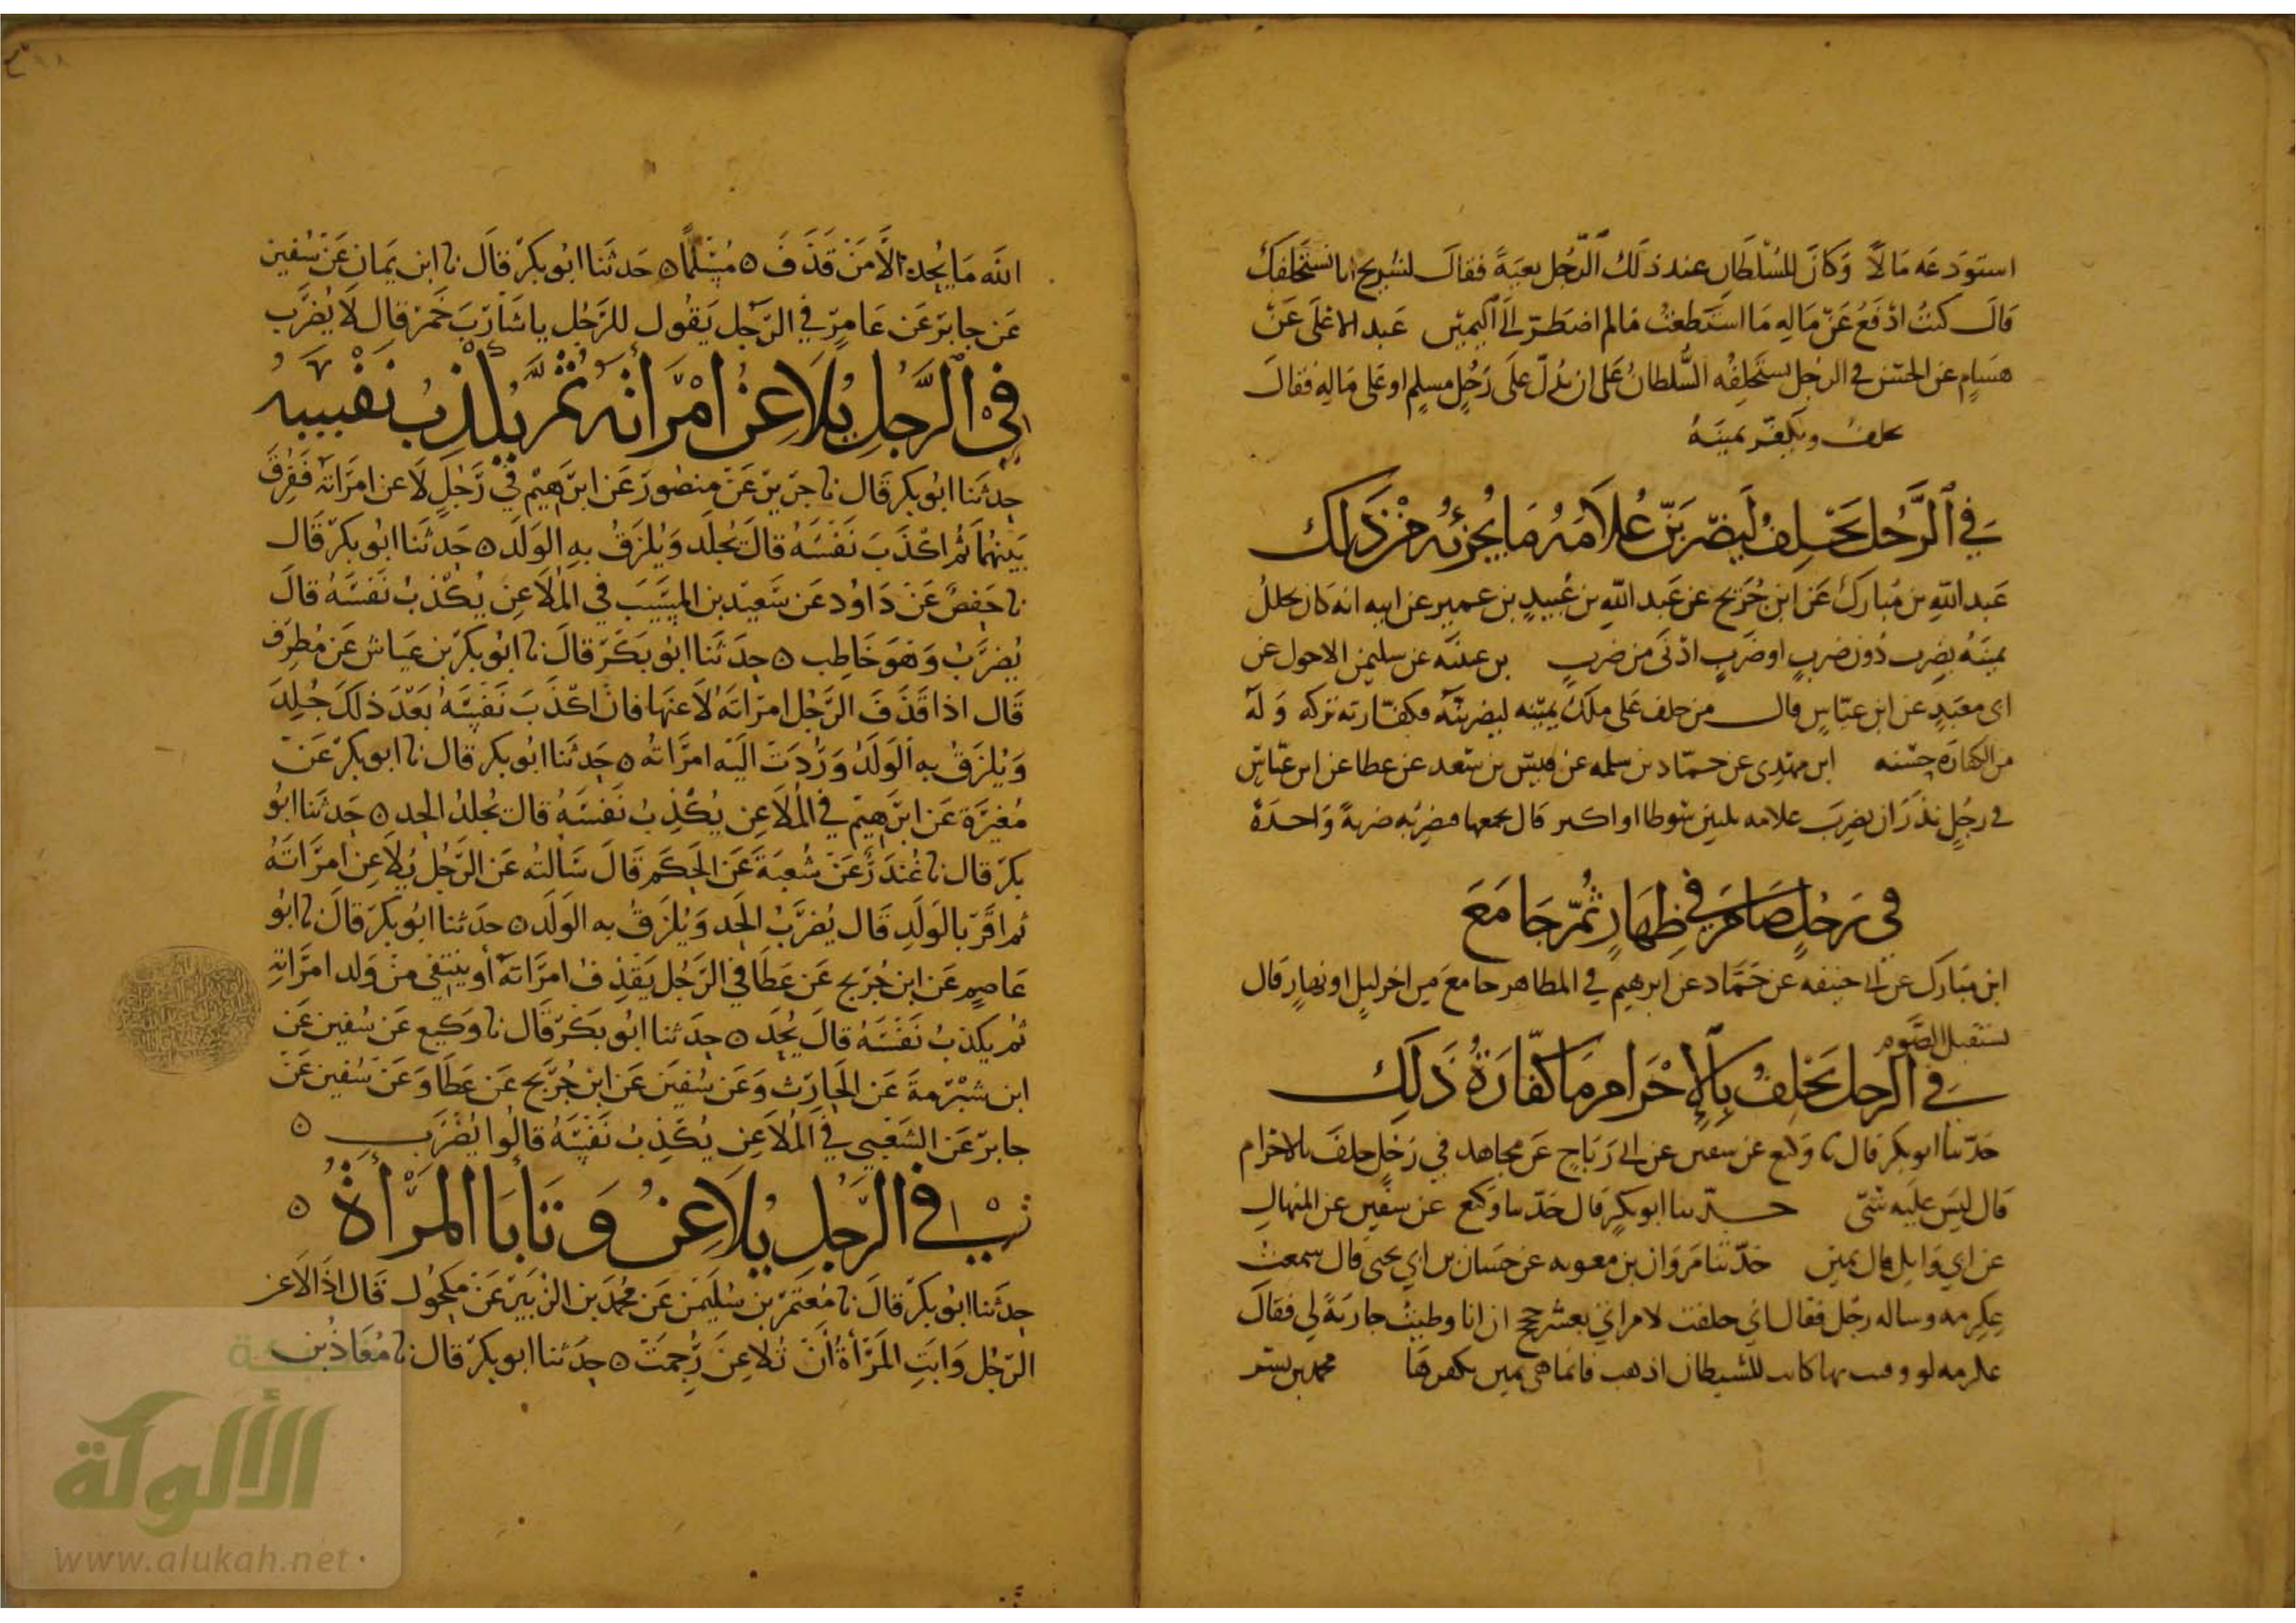 استودعه مالًا وكان للسلطان عند ذلك الرجل بغية فقال لشريح انا نستحلفك
قال كنت ادفع عن ماله ما استطعت مالم اضطر الى اليمين عبد الاعلى عن
هشام عن الحسن في الرجل يستحلفه السلطان على ان يدل على رجل مسلم او على ماله فقال
يحلف ويكفر يمينه
في الرجل يحلف ليضربن غلامه ما يجزئه من ذلك
عبد الله بن مبارك عن ابن جريج عن عبد الله بن عبيد بن عمير عن ابيه انه كان يحلل
يمينه بضرب دون ضرب او ضرب ادنى من ضرب بن علية عن سليمن الاحول عن
ابي معبد عن ابن عباس قال من حلف على ملك يمينه ليضربنه فكفارته تركه وله
من الكفارة حسنه ابن مهدي عن حماد بن سلمه عن قيس بن سعد عن عطا عن ابن عباس
في رجل نذر ان يضرب غلامه ثلثين سوطا او اكثر قال يجمعها فيضربه ضربة واحدة
في رجل صام في ظهار ثم جامع
ابن مبارك عن ابي حنيفه عن حماد عن ابرهيم في المظاهر جامع من اخر ليل او نهار قال
يستقبل الصوم
في الرجل يحلف بالاحرام ما كفارة ذلك
حدثنا ابو بكر قال نا وكيع عن سفين عن ابي رباح عن مجاهد في رجل حلف بالاحرام
قال ليس عليه شي حدثنا ابو بكر قال حدثنا وكيع عن سفين عن المنهال
عن ابي وايل قال يمين حدثنا مروان بن معويه عن حسان بن ابي يحيى قال سمعت
عكرمه وساله رجل فقال اني حلفت لامراتي بعشر حجج ان انا وطيت جارية لي فقال
عكرمه لو وفيت بها كانت للشيطان اذهب فانما هي يمين يكفرها محمد بن بشر
الله ما يحده الا من قذف ٥ مسلمًا ٥ حدثنا ابو بكر قال نا ابن يمان عن سفين
عن جابر عن عامر في الرجل يقول للرجل يا شارب خمر قال لا يضرب
في الرجل يلاعن امراته ثم يكذب نفسه
حدثنا ابو بكر قال نا جرير عن منصور عن ابرهيم في رجل لاعن امراته ففرق
بينهما ثم اكذب نفسه قال يجلد ويلزق به الولد ٥ حدثنا ابو بكر قال
نا حفص عن داود عن سعيد بن المسيب في الملاعن يكذب نفسه قال
يضرب وهو خاطب ٥ حدثنا ابو بكر قال نا ابو بكر بن عياش عن مطرف
قال اذا قذف الرجل امراته لاعنها فان اكذب نفسه بعد ذلك جلد
ويلزق به الولد وردت اليه امراته ٥ حدثنا ابو بكر قال نا ابو بكر عن
مغيرة عن ابرهيم في الملاعن يكذب نفسه قال يجلد الحد ٥ حدثنا ابو
بكر قال نا غندر عن شعبة عن الحكم قال سالته عن الرجل يلاعن امراته
ثم اقر بالولد قال يضرب الحد ويلزق به الولد ٥ حدثنا ابو بكر قال نا ابو
عاصم عن ابن جريج عن عطا في الرجل يقذف امراته أو ينتفي من ولد امراته
ثم يكذب نفسه قال يحد ٥ حدثنا ابو بكر قال نا وكيع عن سفين عن
ابن شبرمة عن الحارث وعن سفين عن ابن جريج عن عطا وعن سفين عن
جابر عن الشعبي في الملاعن يكذب نفسه قالوا يضرب ٥
في الرجل يلاعن وتابا المرأة ٥
حدثنا ابو بكر قال نا معتمر بن سليمن عن محمد بن الزبير عن مكحول قال اذا لاعن
الرجل وابت المرأة أن تلاعن رجمت ٥ حدثنا ابو بكر قال نا معاذ بن
الألوكة
www.alukah.net